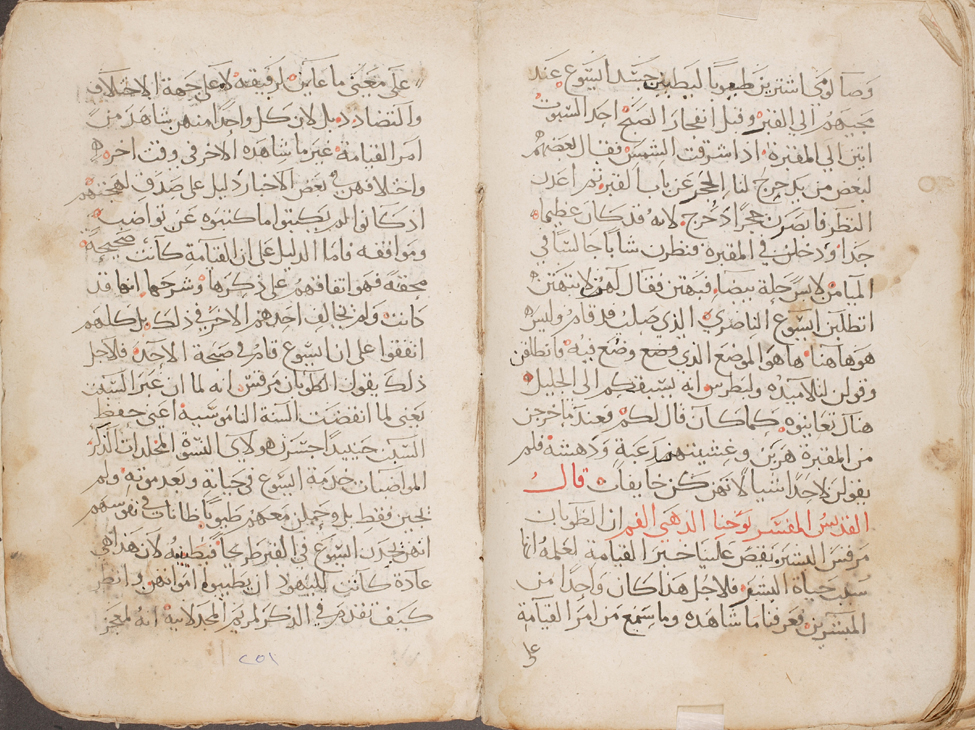 وصالومي اشترين طيوبا ليطيبن جسد ايسوع عند
مجيهم الي القبر وقبل انفجار الصبح احد السبوت
اتين الي المقبرة اذا شرقت الشمس فقال بعضهم
لبعض من يدحرج لنا الحجر عن باب القبر ثم اعدن
النظر فابصرن حجرا دحرج لانه قد كان عظيما
جدا ودخلن في المقبرة فنظرن شابا جالسا في
الميامن لابس حلة بيضا فبهتن فقال لهن لا تبهتن
اتطلبن ايسوع الناصري الذي صلب قد قام وليس
هو هاهنا ها هو الموضع الذي وضع فيه فانطلقن
وقولن لتلاميذه ولبطرس انه يسبقكم الي الجليل
هناك تعاينوه كما كان قال لكم فعند ما خرجن
من المقبرة هربن وغشيتهن رعبة ودهشة فلم
يقولن لاحد شيا لانهن كن خايفات قال
القديس المفسر يوحنا الذهبي الفم ان الطوبان
مرقس المبشر يقص علينا خبر القيامة لعلمه انها
سبب حياة البشر فلاجل هذا كان واحدا من
المبشرين فعرفنا ما شاهده وما سمع من امر القيامة
علي
علي معني ما عاين لرفيقه لا علي جهة الاختلاف
والتضادد بل لان كل واحدا منهن شاهد من
امر القيامة غير ما شاهده الاخر في وقت اخر
واختلافهن في بعض الاخبار دليل علي صدق لهجتهم
اذ كانوا لم يكتبوا ما كتبوه عن تواضب
وموافقة فاما الدليل علي ان القيامة كانت صحيحة
محققة فهو اتفاقهم علي ذكرها وشرحها انها قد
كانت ولم يخالف احدهم الاخر في ذلك بل كلهم
اتفقوا علي ان ايسوع قام في صبحة الاحد فلاجل
ذلك يقول الطوبان مرقس انه لما ان عبر السبت
يعني لما انقضت السنة الناموسية اعني حفظ
السبت حينيذ جسرن هولاي النسوة المخلدات الذكر
المواضبات خدمة ايسوع في حياته وبعد موته ولم
يجين فقط بل وحملن معهم طيوبا ظانات في نفوسهم
انهن يجدن ايسوع في القبر طريحا فيطيبنه لان هذا هي
عادة كانت لليهود ان يطيبوا امواتهن وانظر
كيف تقدم في الذكر لمريم المجدلانية انه لمعجز
٢٥١